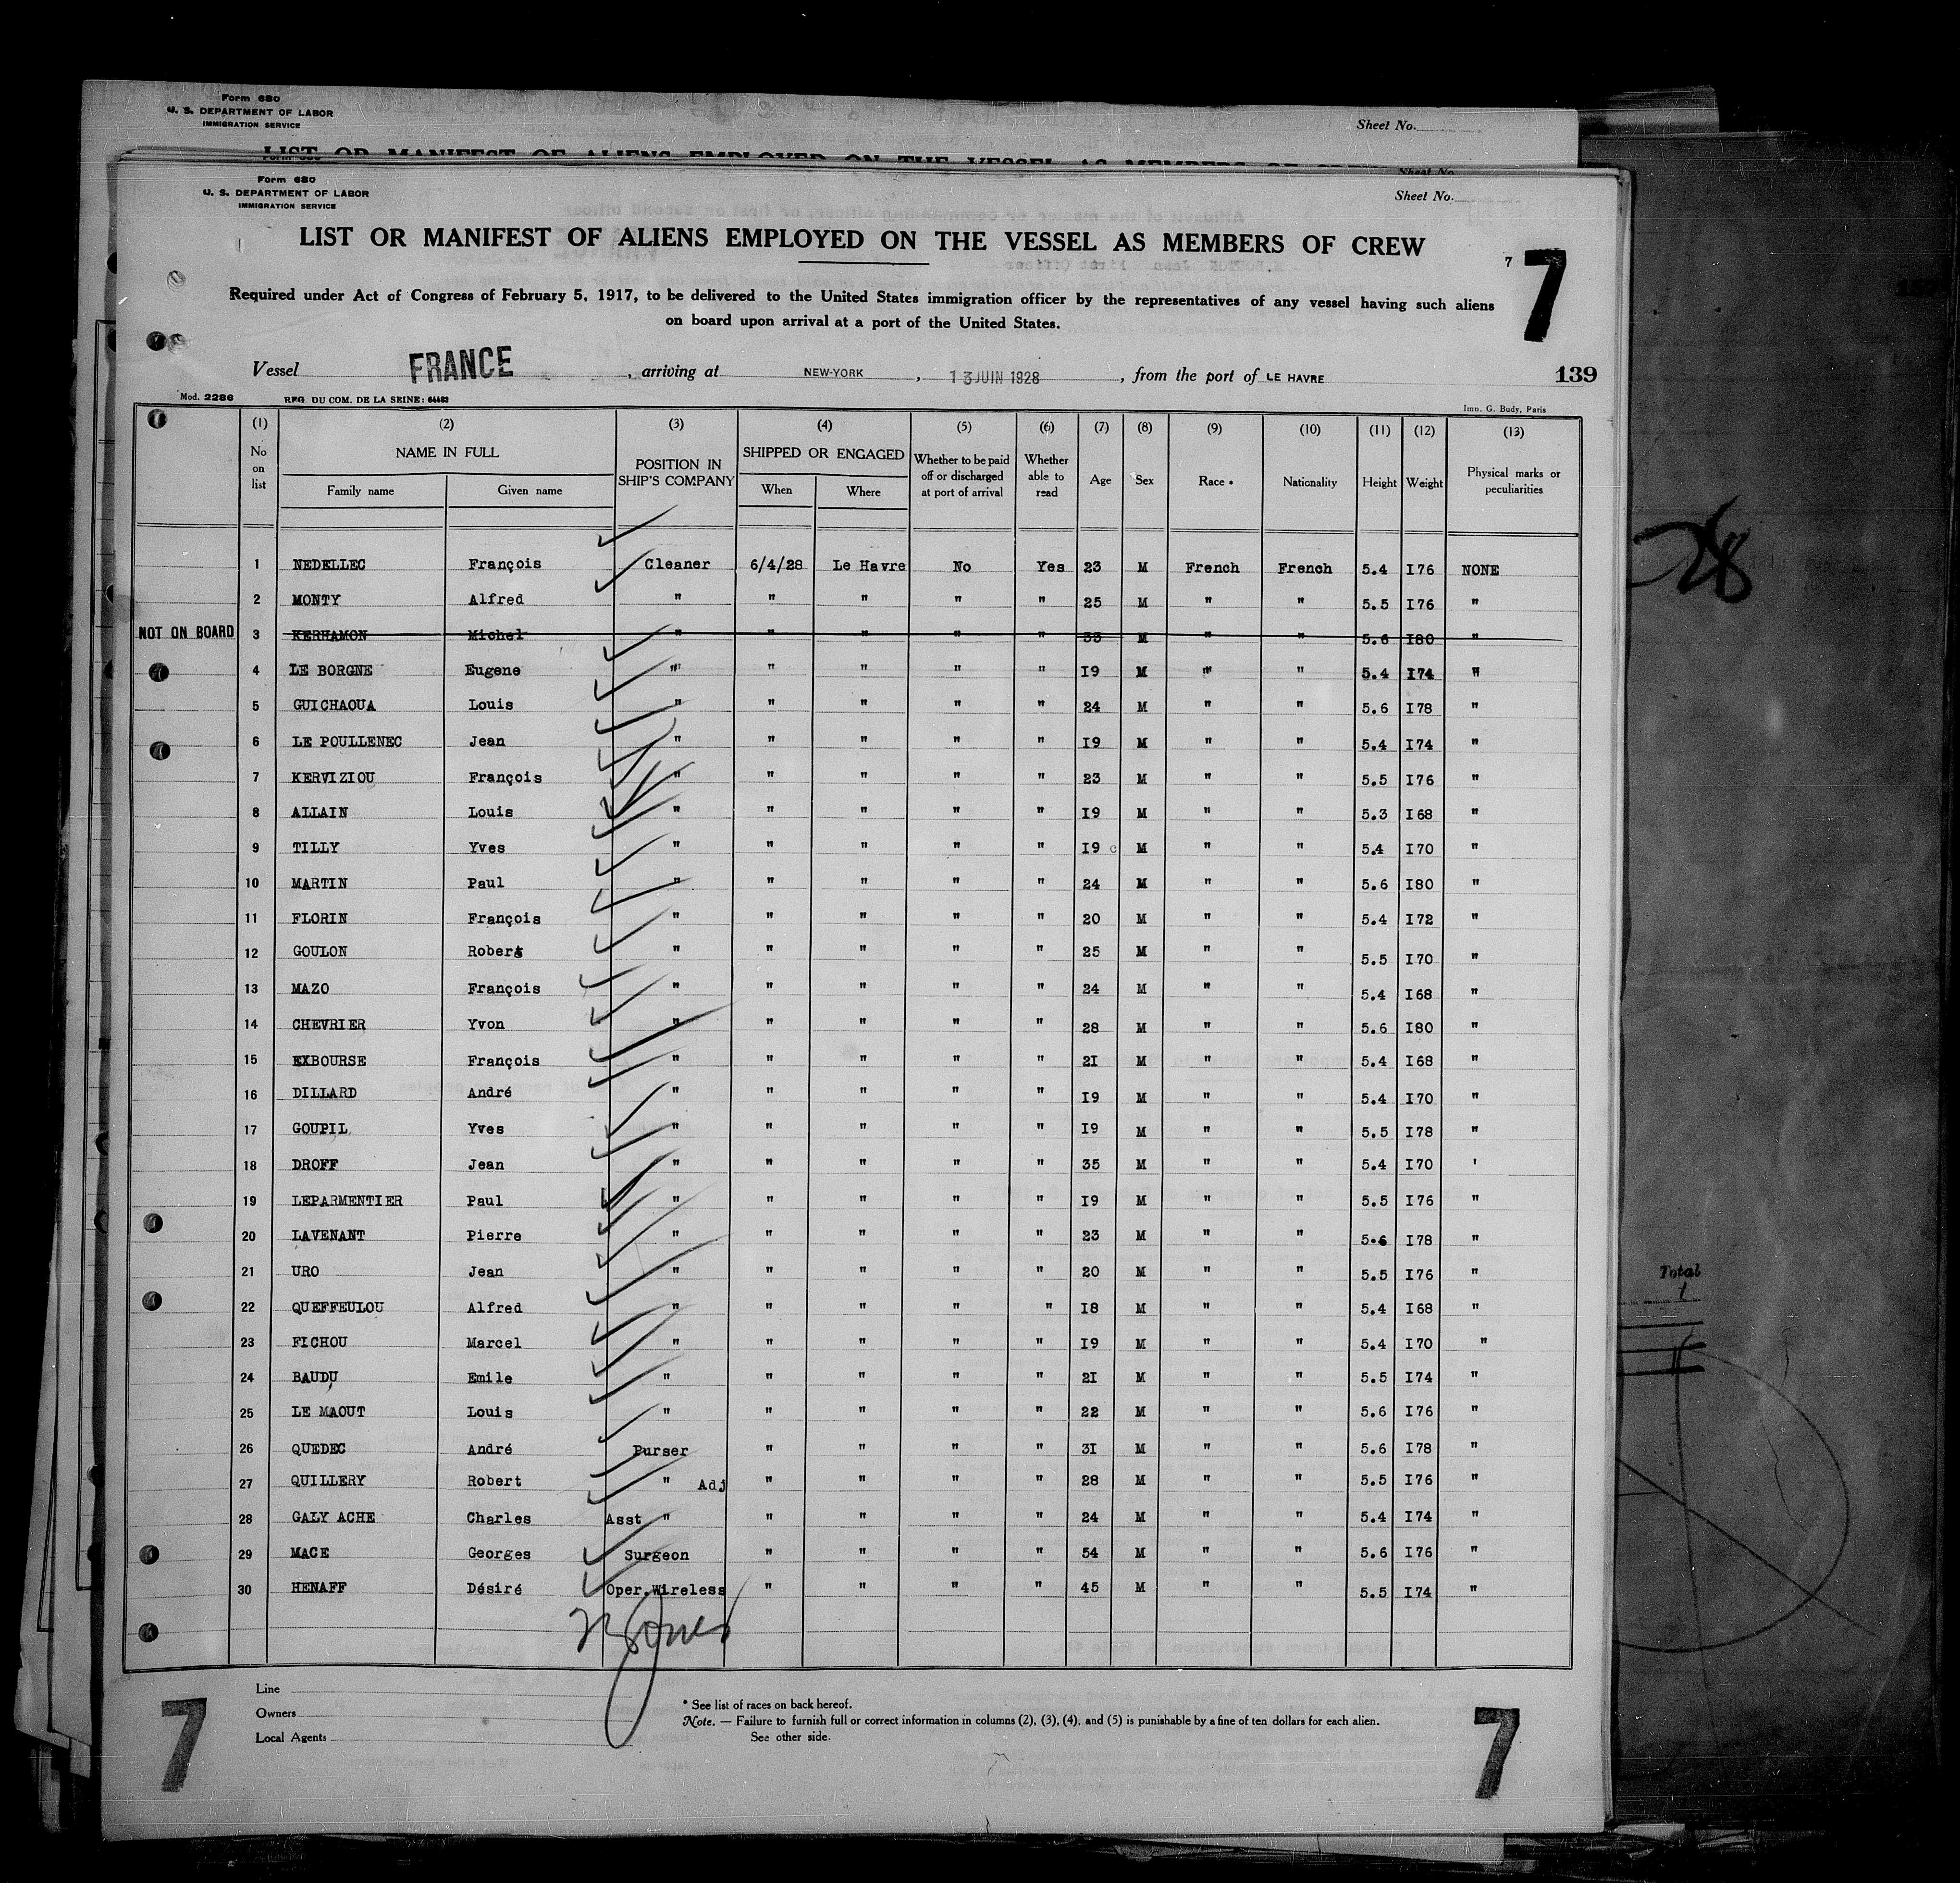 Form 680
U. S. DEPARTMENT OF LABOR
IMMIGRATION SERVICE
Sheet No.
LIST OR MANIFEST OF ALIENS EMPLOYED ON THE VESSEL AS MEMBERS OF CREW
Sheet No.
Form 680
U. S. DEPARTMENT OF LABOR
IMMIGRATION SERVICE
Sheet No.
LIST OR MANIFEST OF ALIENS EMPLOYED ON THE VESSEL AS MEMBERS OF CREW
7 7
Required under Act of Congress of February 5, 1917, to be delivered to the United States immigration officer by the representatives of any vessel having such aliens
on board upon arrival at a port of the United States.
Vessel FRANCE , arriving at NEW-YORK , 13 JUIN 1928 , from the port of LE HAVRE 139
Mod. 2286 REG DU COM. DE LA SEINE: 64483 Imp. G. Budy, Paris
(1) (2) (3) (4) (5) (6) (7) (8) (9) (10) (11) (12) (13)
No on list NAME IN FULL POSITION IN SHIP'S COMPANY SHIPPED OR ENGAGED Whether to be paid off or discharged at port of arrival Whether able to read Age Sex Race * Nationality Height Weight Physical marks or peculiarities
Family name Given name When Where
1 NEDELLEC François Cleaner 6/4/28 Le Havre No Yes 23 M French French 5.4 I76 NONE
2 MONTY Alfred " " " " " 25 M " " 5.5 I76 "
NOT ON BOARD 3 KERHAMON Michel " " " " " 33 M " " 5.6 I80 "
4 LE BORGNE Eugene " " " " " I9 M " " 5.4 I74 "
5 GUICHAOUA Louis " " " " " 24 M " " 5.6 I78 "
6 LE POULLENEC Jean " " " " " I9 M " " 5.4 I74 "
7 KERVIZIOU François " " " " " 23 M " " 5.5 I76 "
8 ALLAIN Louis " " " " " I9 M " " 5.3 I68 "
9 TILLY Yves " " " " " I9 c M " " 5.4 I70 "
10 MARTIN Paul " " " " " 24 M " " 5.6 I80 "
11 FLORIN François " " " " " 20 M " " 5.4 I72 "
12 GOULON Robert " " " " " 25 M " " 5.5 I70 "
13 MAZO François " " " " " 24 M " " 5.4 I68 "
14 CHEVRIER Yvon " " " " " 28 M " " 5.6 I80 "
15 EXBOURSE François " " " " " 2I M " " 5.4 I68 "
16 DILLARD André " " " " " I9 M " " 5.4 I70 "
17 GOUPIL Yves " " " " " I9 M " " 5.5 I78 "
18 DROFF Jean " " " " " 35 M " " 5.4 I70 '
19 LEPARMENTIER Paul " " " " " I9 M " " 5.5 I76 "
20 LAVENANT Pierre " " " " " 23 M " " 5.6 I78 "
21 URO Jean " " " " " 20 M " " 5.5 I76 "
22 QUEFFEULOU Alfred " " " " " I8 M " " 5.4 I68 "
23 FICHOU Marcel " " " " " I9 M " " 5.4 I70 "
24 BAUDU Emile " " " " " 2I M " " 5.5 I74 "
25 LE MAOUT Louis " " " " " 22 M " " 5.6 I76 "
26 QUEDEC André Purser " " " " 3I M " " 5.6 I78 "
27 QUILLERY Robert " Adj " " " " 28 M " " 5.5 I76 "
28 GALY ACHE Charles Asst " " " " " 24 M " " 5.4 I74 "
29 MACE Georges Surgeon " " " " 54 M " " 5.6 I76 "
30 HENAFF Désiré Oper.Wireless " " " " 45 M " " 5.5 I74 "
Line
Owners
Local Agents
* See list of races on back hereof.
Note. — Failure to furnish full or correct information in columns (2), (3), (4), and (5) is punishable by a fine of ten dollars for each alien.
See other side.
7 7
Total
1